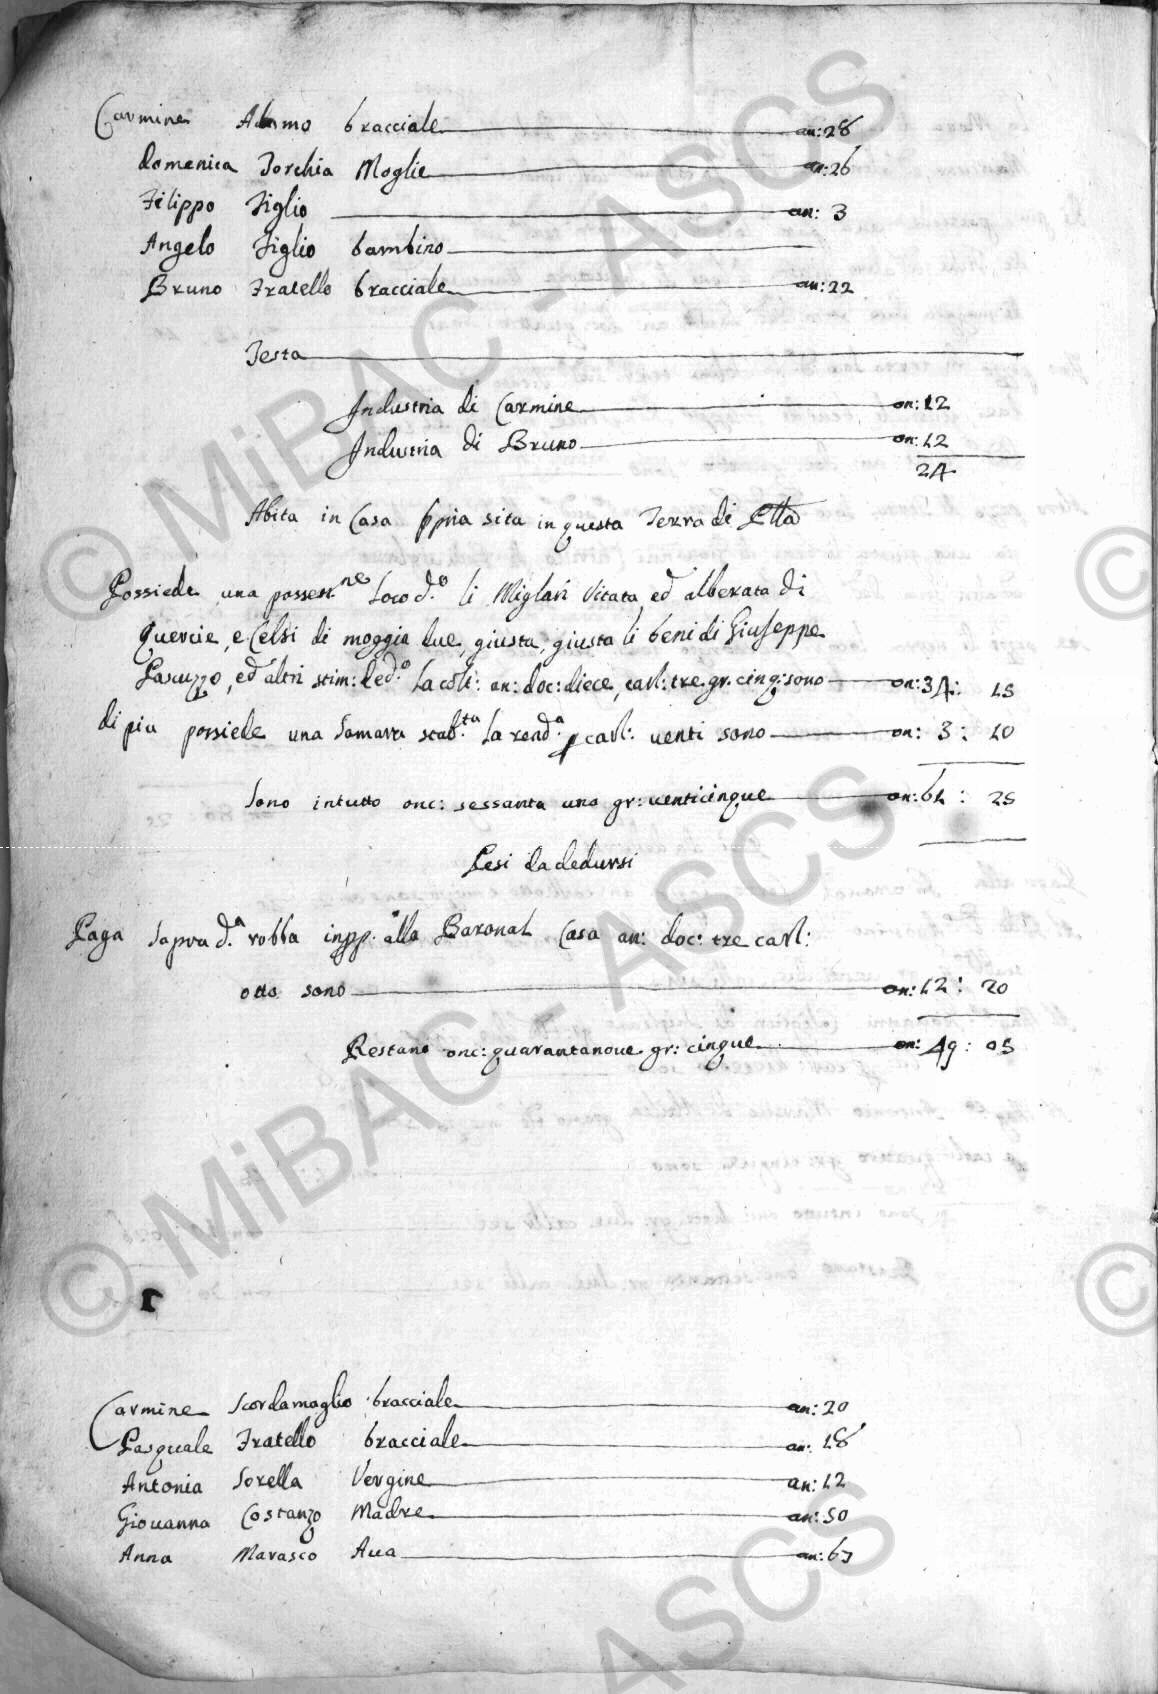 Carmine Adamo bracciale an: 28
Domenica Torchia Moglie an: 26
Filippo Figlio an: 3
Angelo Figlio bambino
Bruno Fratello bracciale an: 22
Testa
Industria di Carmine on: 12
Industria di Bruno on: 12
24
Abita in Casa ppria sita in questa Terra di
Possiede una possess.ne loco d.o li Migliari Vitata, ed alberata di
Quercie, e Celsi di moggia due, giusta, giusta li beni di Giuseppe
Pascuzzo, ed altri stim: ded.o la coli: an: doc: diece, carl: tre gr: cinq: sono on: 34: 15
di più possiede una Somara stab.ta la rend.a p carl: venti sono on: 3: 10
Sono intutto onc: sessanta una gr: venticinque on: 61: 25
Pesi da dedursi
Paga sopra d.a robba inpp. alla Baronal Casa an: doc: tre carl:
otto sono on: 12: 20
Restano onc: quarantanove gr: cinque on: 49: 05
Carmine Scordamaglio bracciale an: 20
Pasquale Fratello bracciale an: 18
Antonia Sorella Vergine an: 12
Giovanna Costanzo Madre an: 50
Anna Marasco Ava an: 67
© MiBAC - ASCS
© MiBAC - ASCS
©
©
ASCS